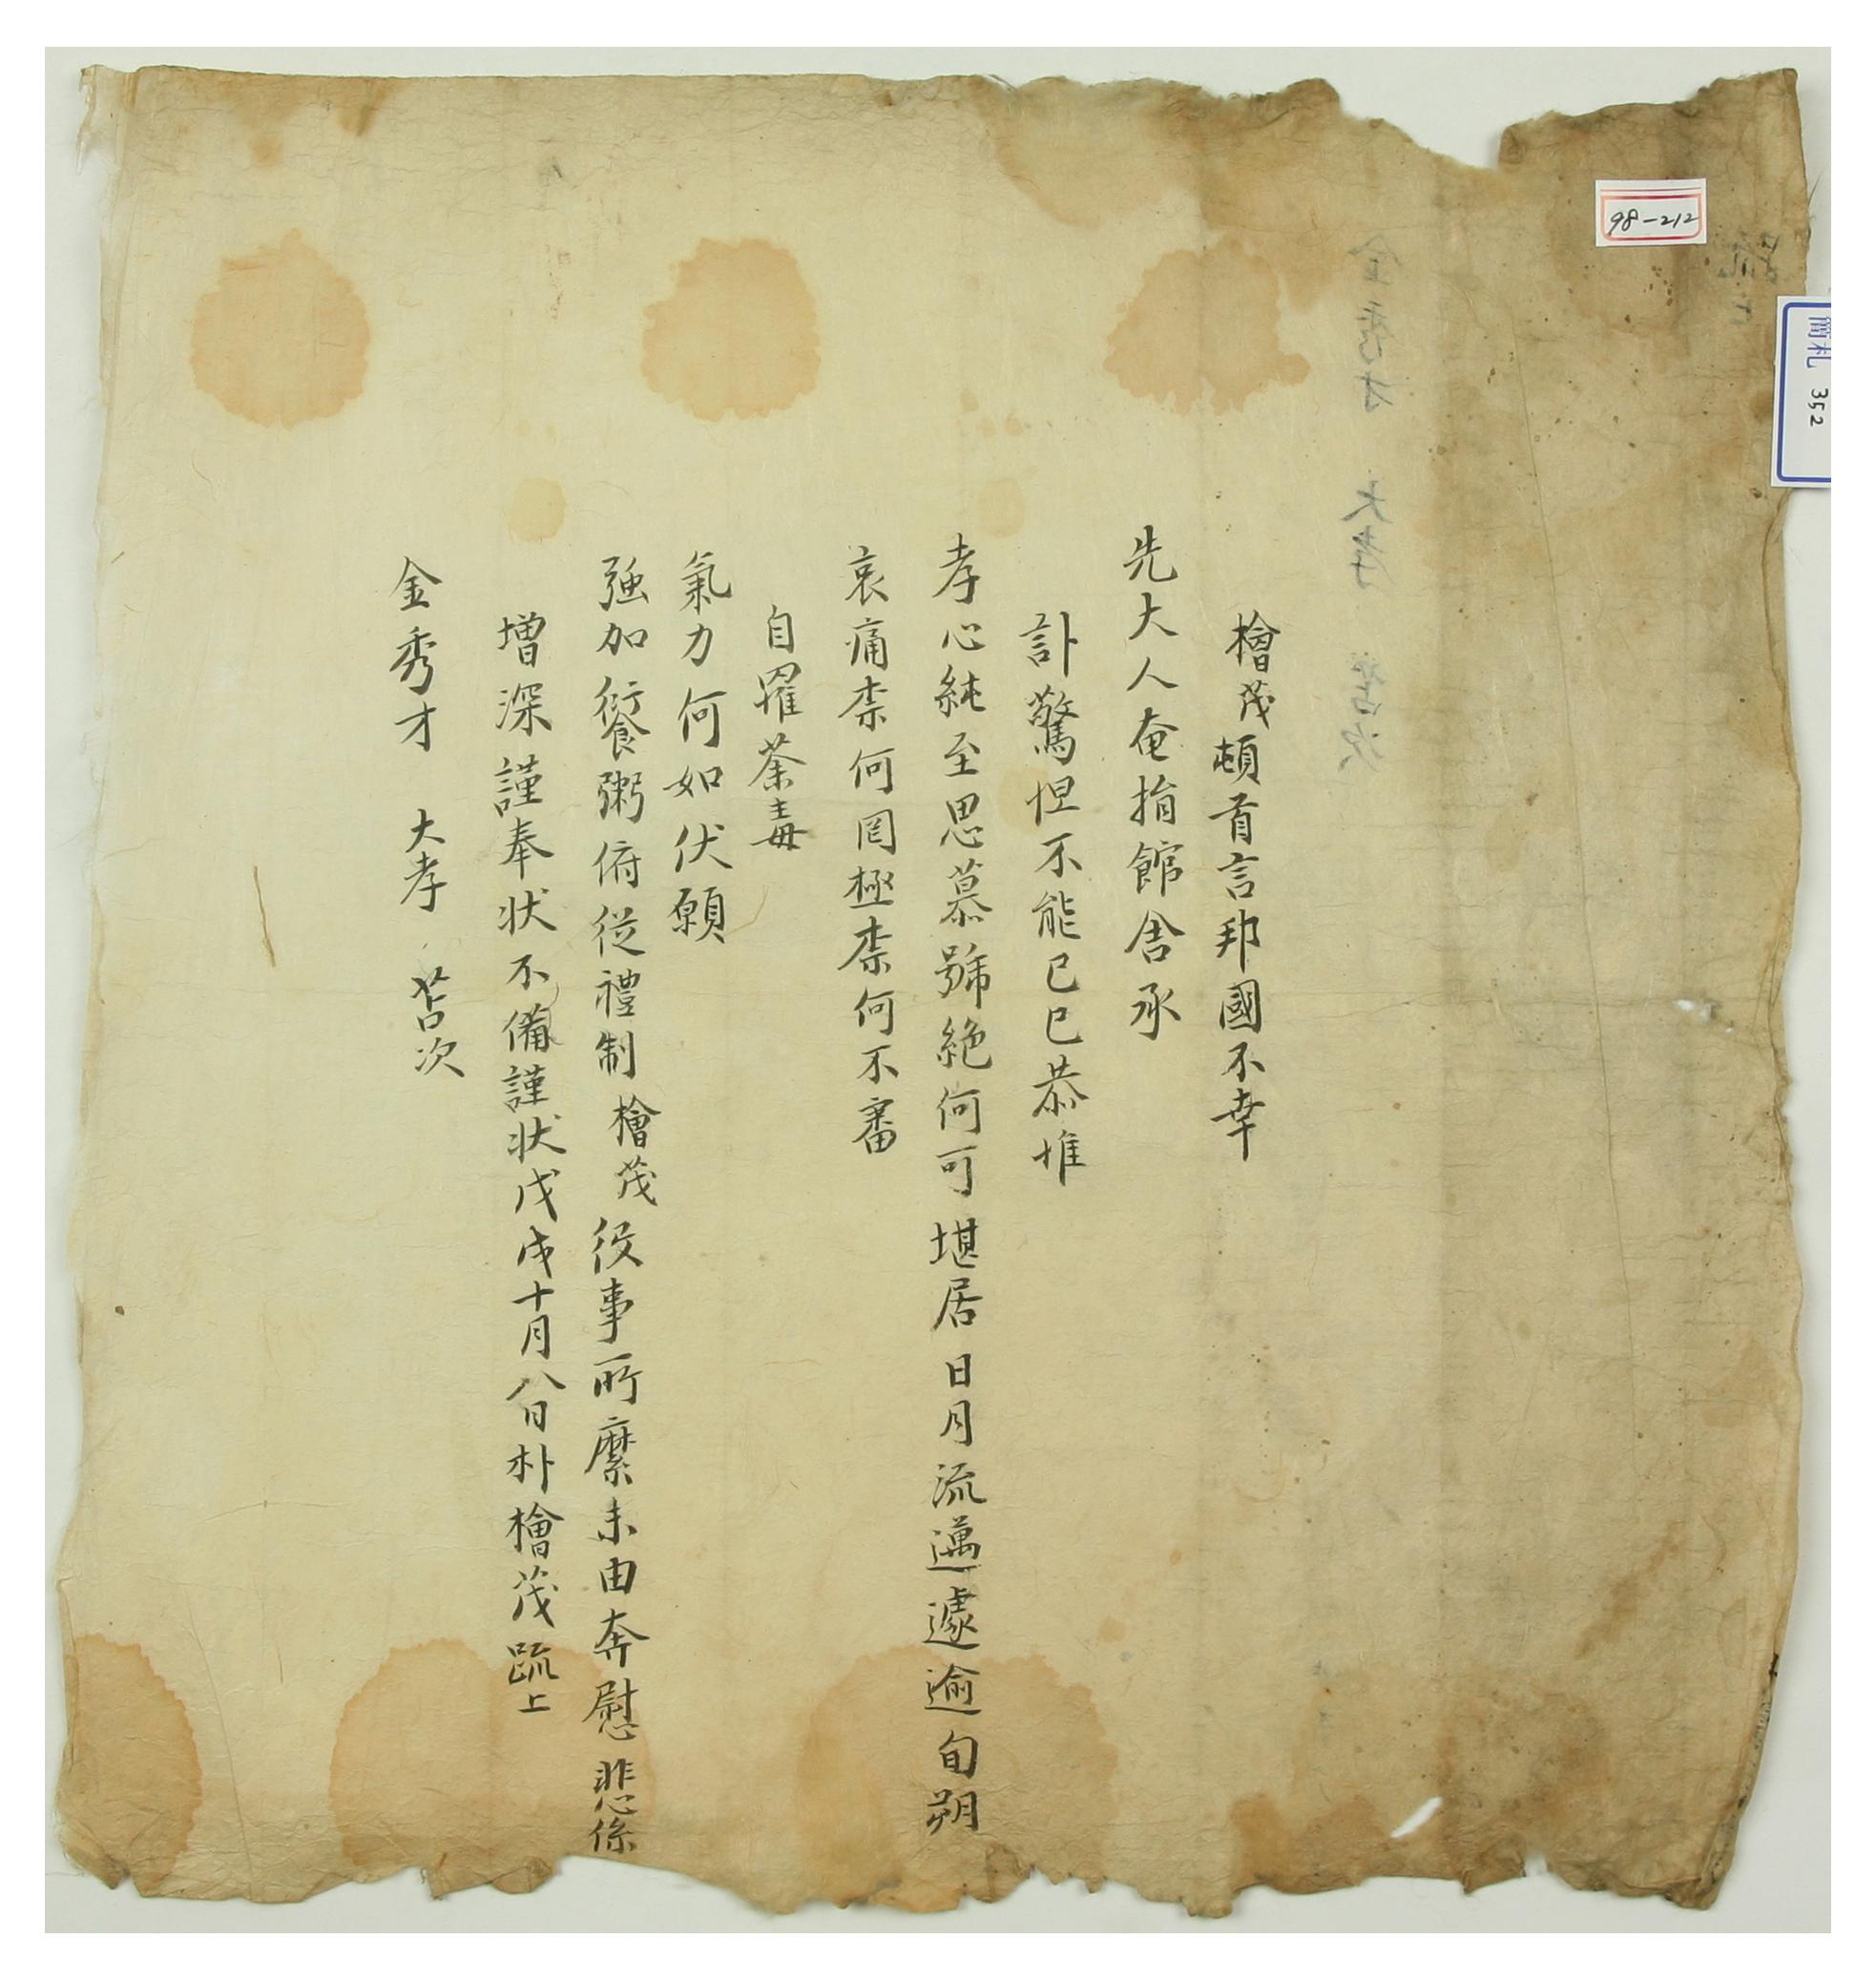 98-212
簡札 352
疏上
金秀才 大孝 苫次
檜茂頓首言邦國不幸
先大人奄捐館舍承
訃驚怛不能已已恭惟
孝心純至思慕號絶何可堪居日月流邁遽逾旬朔
哀痛柰何罔極柰何不審
自罹荼毒
氣力何如伏願
强加餐粥俯從禮制檜茂役事所縻未由奔慰悲係
增深謹奉狀不備謹狀戊戌十月八日朴檜茂疏上
金秀才 大孝 苫次